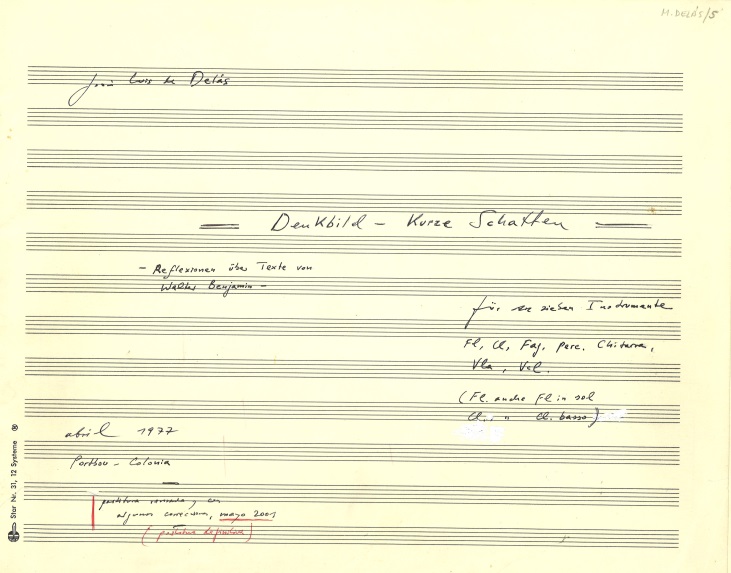 M. DELÁS/5
José Luis de Delás
Denkbild – Kurze Schatten
– Reflexionen über Texte von
Walter Benjamin –
für sieben Instrumente
Fl, Cl, Fag, perc. Chitarra,
Vla, Vcl.
(Fl. anche Fl in sol
Cl. " Cl. basso)
abril 1977
Portbou – Colonia
partitura revisada y con
algunas correcciones, mayo 2001
(partitura definitiva)
Star Nr. 31, 12 Systeme ®